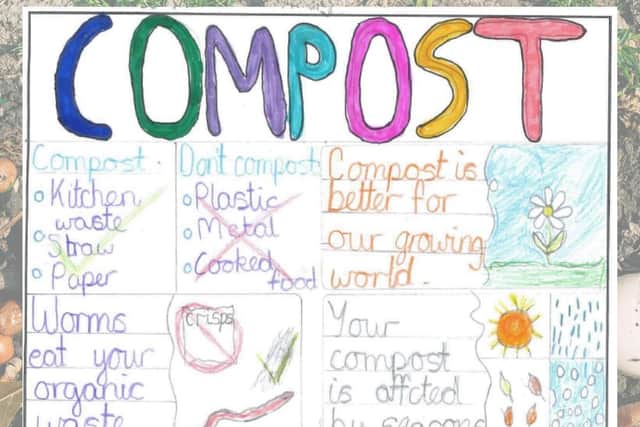 COMPOST
Compost.
Kitchen
waste
Straw
Paper
Don't compost
Plastic
Metal
Cooked
food
Compost is
better for
our growing
world.
Worms
eat your
organic
waste
crisps
Your
compost
is affcted
by seasons